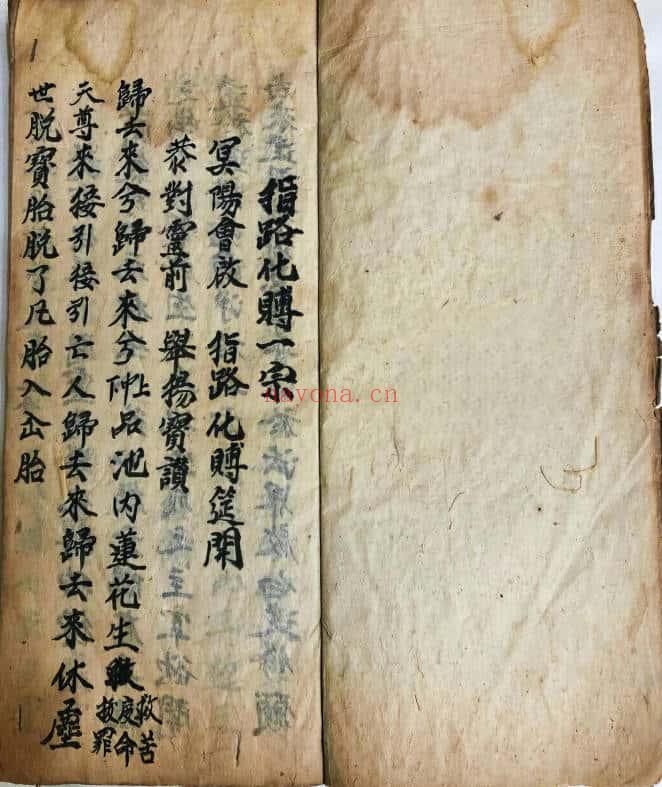 指路化賻一宗
冥陽會啟 指路化賻筵開
恭對靈前 舉揚寶讚
歸去來兮歸去來兮上中下品池内蓮花生救苦度命拔罪
天尊來接引接引亡人歸去來歸去來休塵
世脱寶胎脱了凡胎入仚胎
nayona.cn